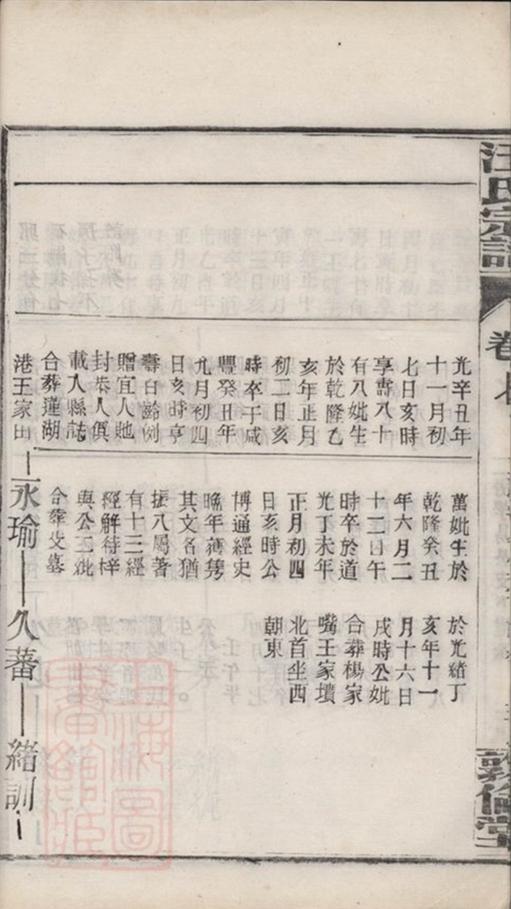 汪氏宗譜
卷七
敦倫堂
光辛丑年
十一月初
七日亥時
享壽八十
有八妣生
於乾隆乙
亥年正月
初二日亥
時卒于咸
豐癸丑年
九月初四
日亥時享
壽百齡例
贈宜人貤
封恭人俱
載入縣誌
合葬蓮湖
港王家山
萬妣生於
乾隆癸丑
年六月二
十二日午
時卒於道
光丁未年
正月初四
日亥時公
博通經史
晚年
其文名猶
振八屬著
有十三經
經解待梓
與公二妣
合葬父墓
永瑜
於光緒丁
亥年十一
月十六日
戌時公妣
合葬楊家
嘴王家墳
北首坐西
朝東
久蕃
緒訓